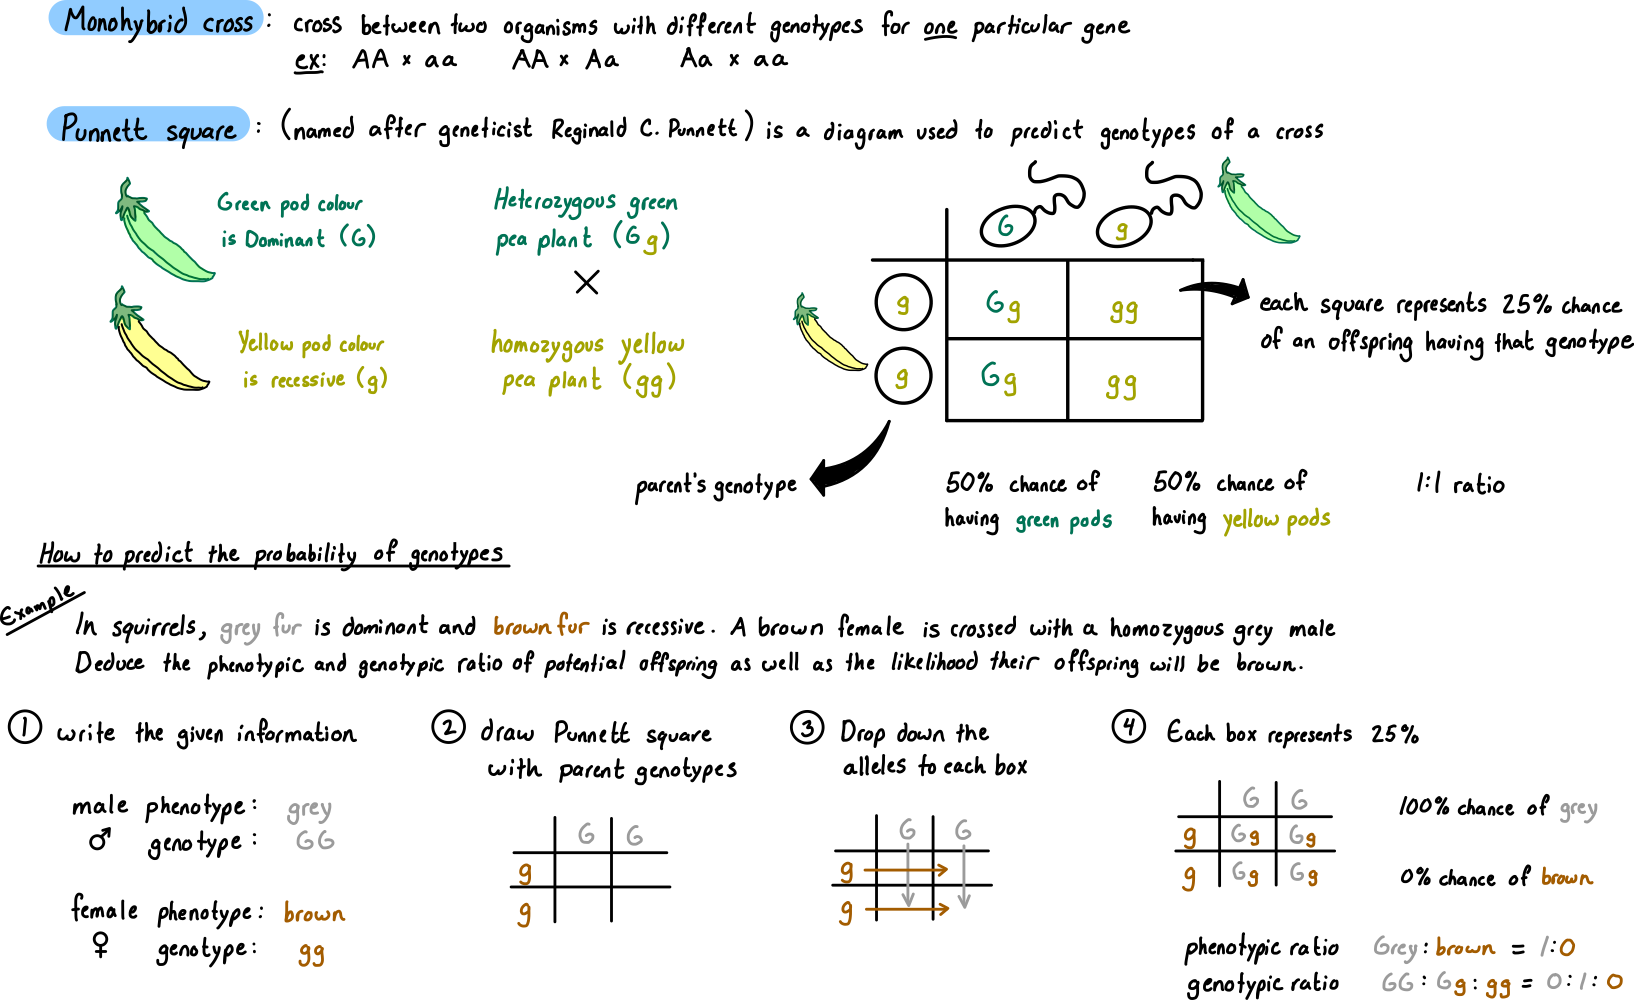 Monohybrid cross : cross between two organisms with different genotypes for one particular gene
ex: AA x aa AA x Aa Aa x aa
Punnett square : (named after geneticist Reginald C. Punnett) is a diagram used to predict genotypes of a cross
Green pod colour
is Dominant (G)
Heterozygous green
pea plant (Gg)
×
Yellow pod colour
is recessive (g)
homozygous yellow
pea plant (gg)
G g
g Gg gg
g Gg gg
each square represents 25% chance
of an offspring having that genotype
parent's genotype
50% chance of
having green pods
50% chance of
having yellow pods
1:1 ratio
How to predict the probability of genotypes
Example
In squirrels, grey fur is dominant and brown fur is recessive. A brown female is crossed with a homozygous grey male
Deduce the phenotypic and genotypic ratio of potential offspring as well as the likelihood their offspring will be brown.
1 write the given information
male phenotype: grey
♂ genotype: GG
female phenotype: brown
♀ genotype: gg
2 draw Punnett square
with parent genotypes
G G
g
g
3 Drop down the
alleles to each box
G G
g
g
4 Each box represents 25%
G G
g Gg Gg
g Gg Gg
100% chance of grey
0% chance of brown
phenotypic ratio Grey:brown = 1:0
genotypic ratio GG:Gg:gg = 0:1:0